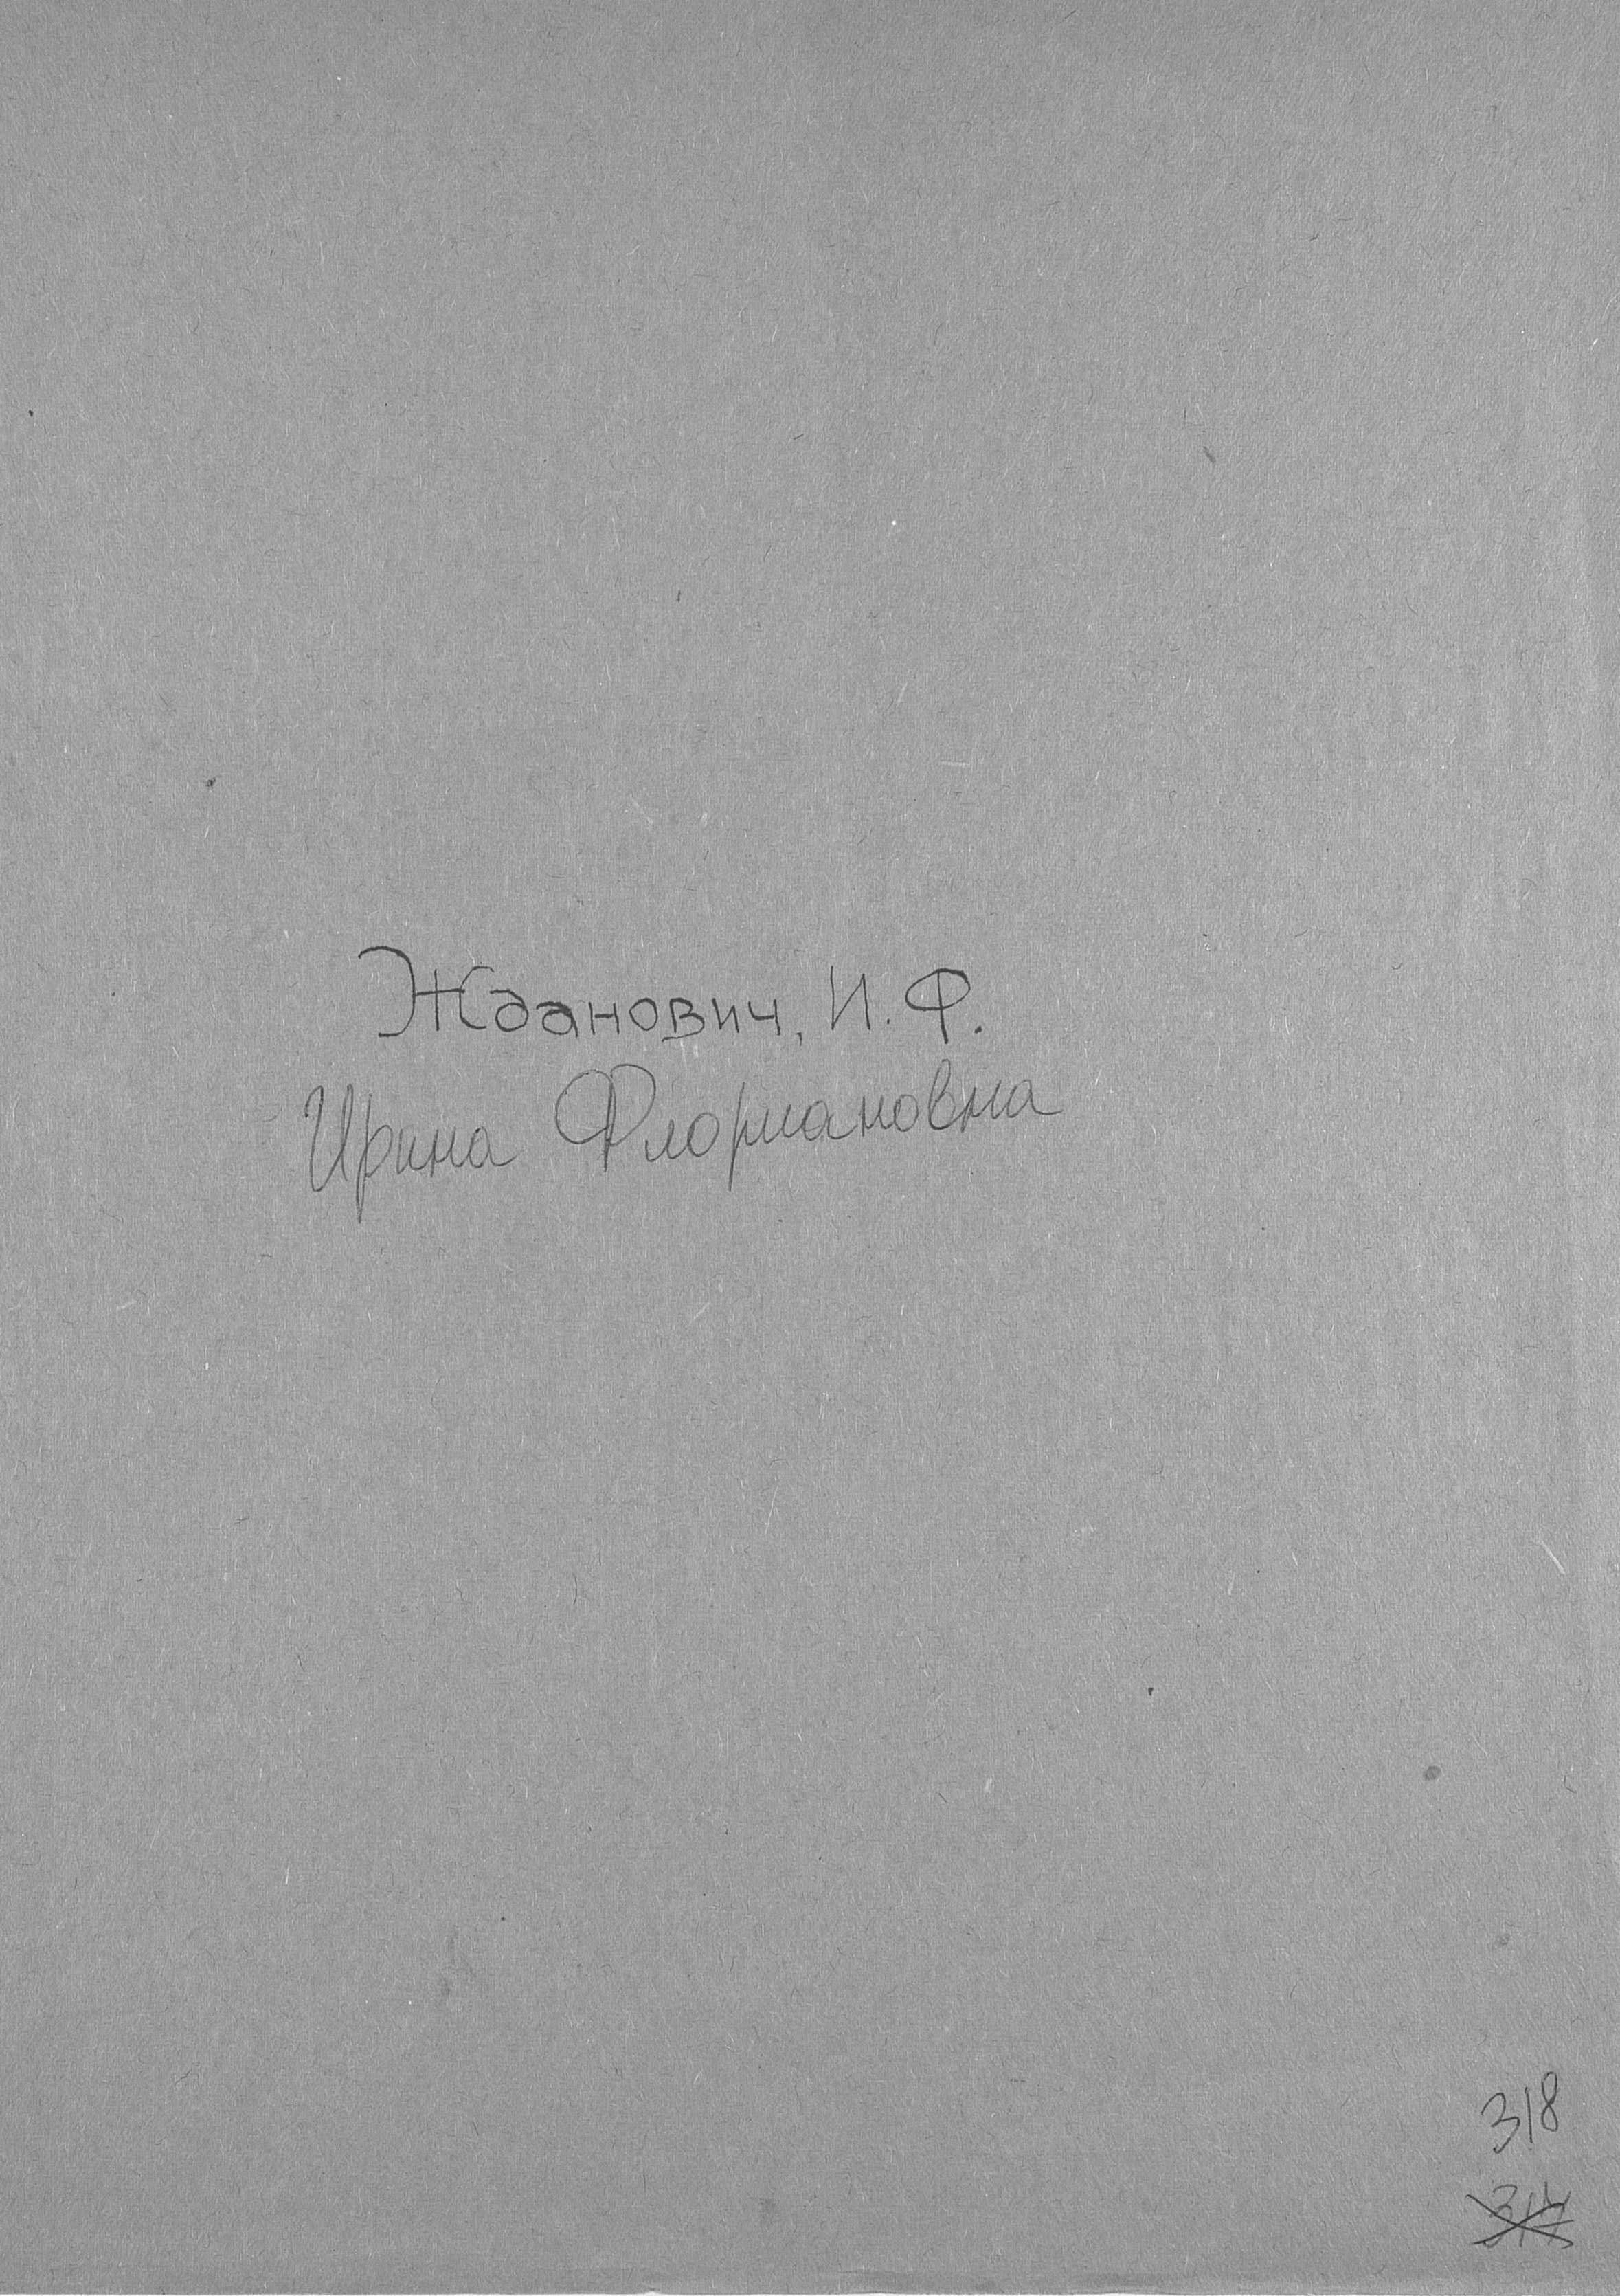 Жданович, И. Ф.
Ирина Флориановна
318